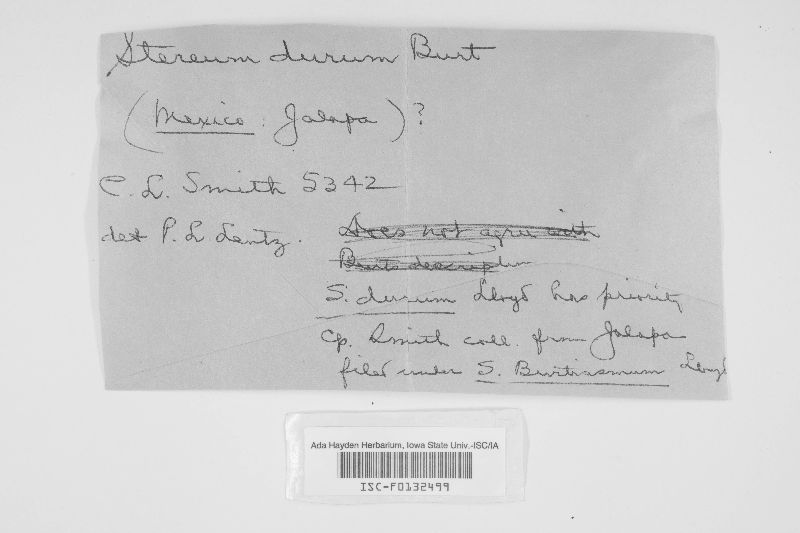 Stereum durum Burt
(Mexico: Jalapa)?
C. L. Smith 5342
det P. L. Lentz.
Does not agree with
Burts description
S. durum Lloyd has priority
Cp. Smith coll. from Jalapa
filed under S. Burtianum Lloyd
Ada Hayden Herbarium, Iowa State Univ.-ISC/IA
ISC-F0132499